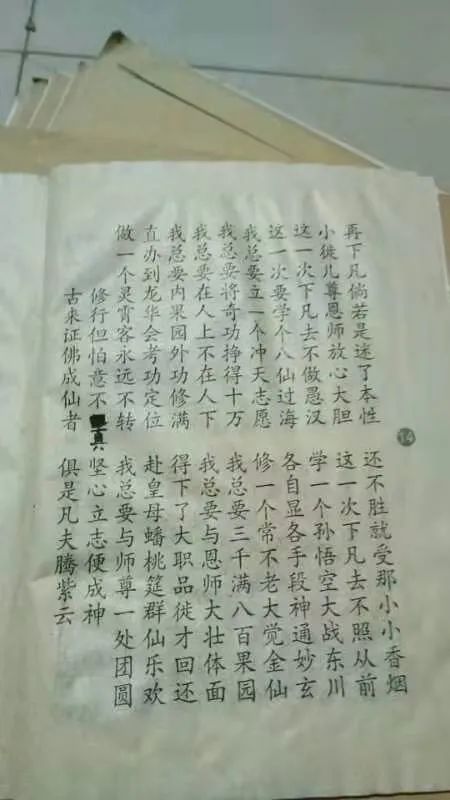 再下凡倘若是迷了本性 还不胜就受那小小香烟
小徒儿尊恩师放心大胆 这一次下凡去不照从前
这一次下凡去不做愚汉 学一个孙悟空大战东川
这一次要学个八仙过海 各自显各手段神通妙玄
我总要立一个冲天志愿 修一个常不老大觉金仙
我总要将奇功挣得十万 我总要三千满八百果园
我总要在人上不在人下 我总要与恩师大壮体面
我总要内果园外功修满 得下了大职品徒才回还
直办到龙华会考功定位 赴皇母蟠桃筵群仙乐欢
做一个灵霄客永远不转 我总要与师尊一处团圆
修行但怕意不真 坚心立志便成神
古来证佛成仙者 俱是凡夫腾紫云
14